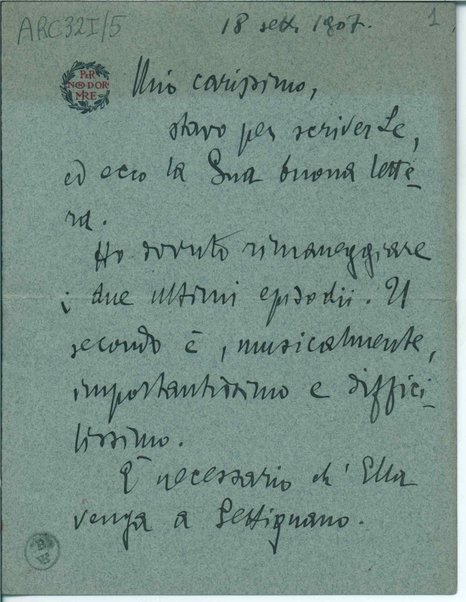 ARC32I/5
18 sett. 1907.
1
PER
NON DOR
MIRE
Mio carissimo,
stavo per scriverLe,
ed ecco la Sua buona lette-
ra.
Ho dovuto rimaneggiare
i due ultimi episodii. Il
secondo è, musicalmente,
importantissimo e diffici-
lissimo.
È necessario ch'Ella
venga a Settignano.